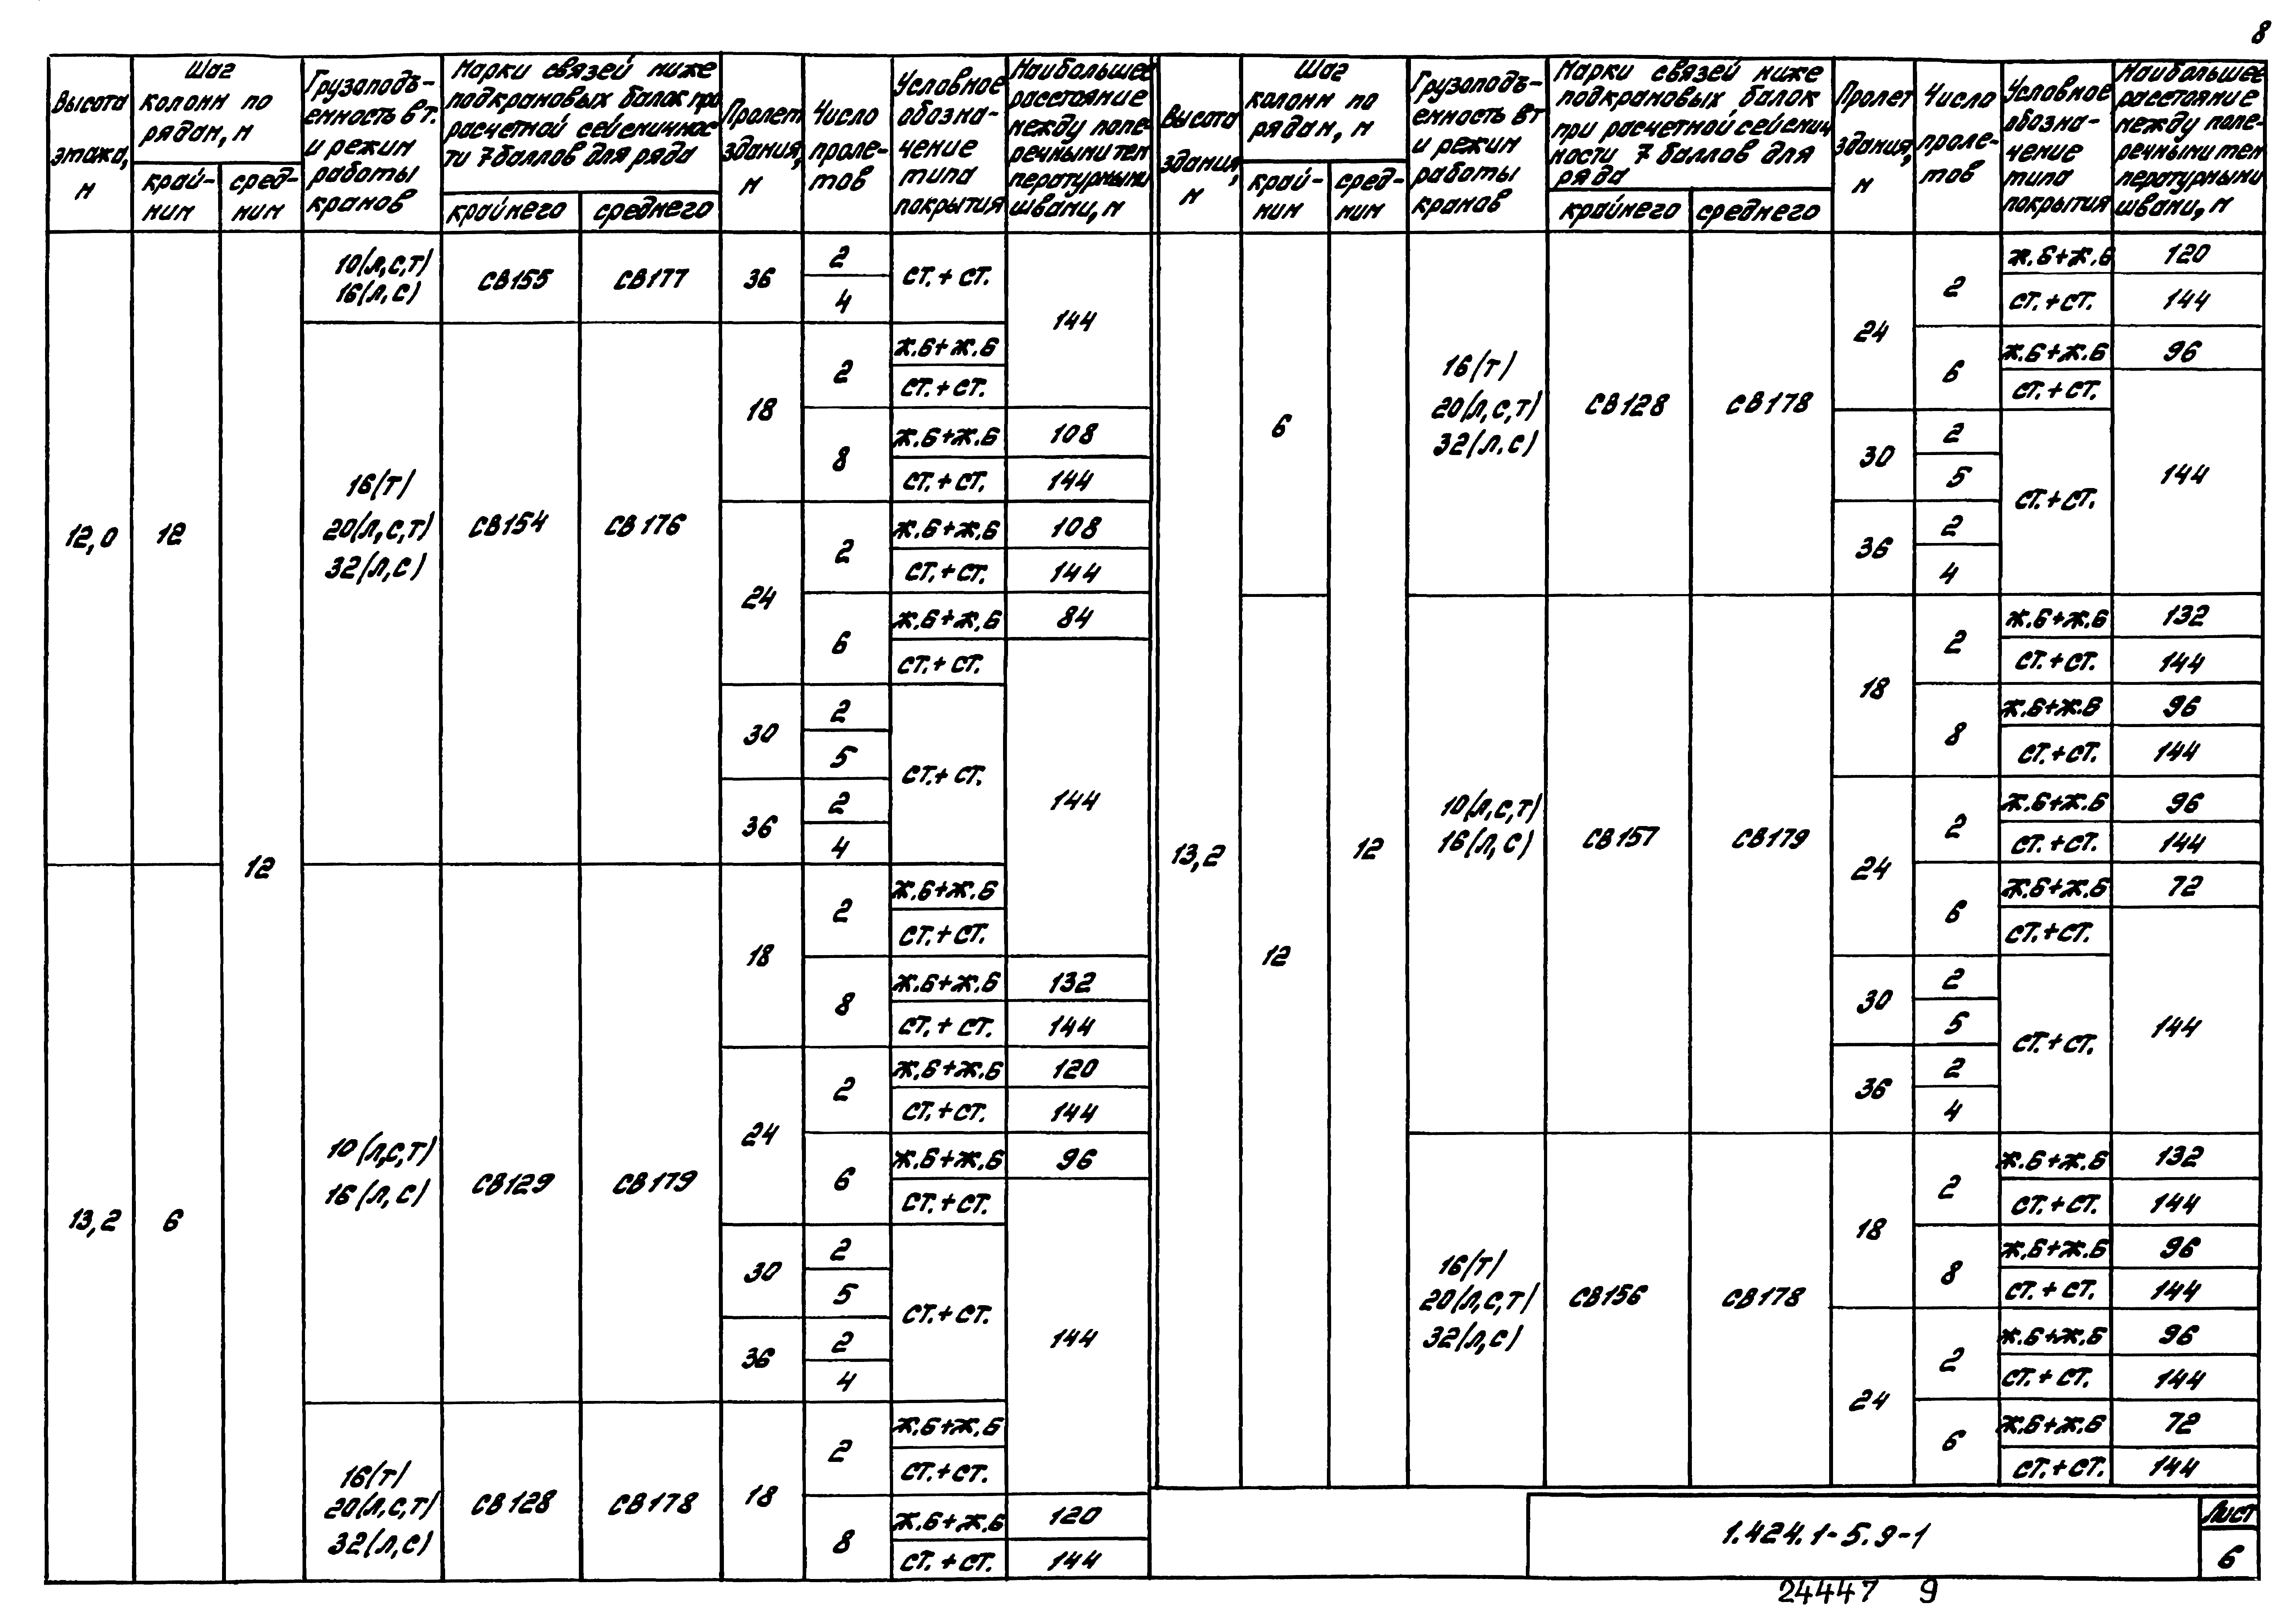 8
Высота
этажа,
м
Шаг
колонн по
рядам, м
край-
ним
сред-
ним
Грузоподъ-
емность в т.
и режим
работы
кранов
Марки связей ниже
подкрановых балок при
расчетной сейсмичнос-
ти 7 баллов для ряда
крайнего
среднего
Пролет
здания,
м
Число
проле-
тов
Условное
обозна-
чение
типа
покрытия
Наибольшее
расстояние
между попе-
речными тем
пературными
швами, м
12,0
12
12
10(л,с,т)
16(л,с)
СВ155
СВ177
36
2
4
ст. + ст.
144
16(т)
20(л,с,т)
32(л,с)
СВ154
СВ176
18
2
ж.б+ж.б
ст. + ст.
8
ж.б+ж.б
108
ст. + ст.
144
24
2
ж.б+ж.б
108
ст. + ст.
144
6
ж.б+ж.б
84
ст. + ст.
30
2
5
ст. + ст.
144
36
2
4
13,2
6
10(л,с,т)
16(л,с)
СВ129
СВ179
18
2
ж.б+ж.б
ст. + ст.
8
ж.б+ж.б
132
ст. + ст.
144
24
2
ж.б+ж.б
120
ст. + ст.
144
6
ж.б+ж.б
96
ст. + ст.
30
2
5
ст. + ст.
144
36
2
4
16(т)
20(л,с,т)
32(л,с)
СВ128
СВ178
18
2
ж.б+ж.б
ст. + ст.
8
ж.б+ж.б
120
ст. + ст.
144
Высота
здания,
м
Шаг
колонн по
рядам, м
край-
ним
сред-
ним
Грузоподъ-
емность в т
и режим
работы
кранов
Марки связей ниже
подкрановых балок
при расчетной сейсмич
ности 7 баллов для
ряда
крайнего
среднего
Пролет
здания,
м
Число
проле-
тов
Условное
обозна-
чение
типа
покрытия
Наибольшее
расстояние
между попе-
речными тем
пературными
швами, м
13,2
6
12
16(т)
20(л,с,т)
32(л,с)
СВ128
СВ178
24
2
ж.б+ж.б
120
ст. + ст.
144
6
ж.б+ж.б
96
ст. + ст.
30
2
5
ст. + ст.
144
36
2
4
12
10(л,с,т)
16(л,с)
СВ157
СВ179
18
2
ж.б+ж.б
132
ст. + ст.
144
8
ж.б+ж.б
96
ст. + ст.
144
24
2
ж.б+ж.б
96
ст. + ст.
144
6
ж.б+ж.б
72
ст. + ст.
30
2
5
ст. + ст.
144
36
2
4
16(т)
20(л,с,т)
32(л,с)
СВ156
СВ178
18
2
ж.б+ж.б
132
ст. + ст.
144
8
ж.б+ж.б
96
ст. + ст.
144
24
2
ж.б+ж.б
96
ст. + ст.
144
6
ж.б+ж.б
72
ст. + ст.
144
1.424.1-5.9-1
Лист
6
24447 9